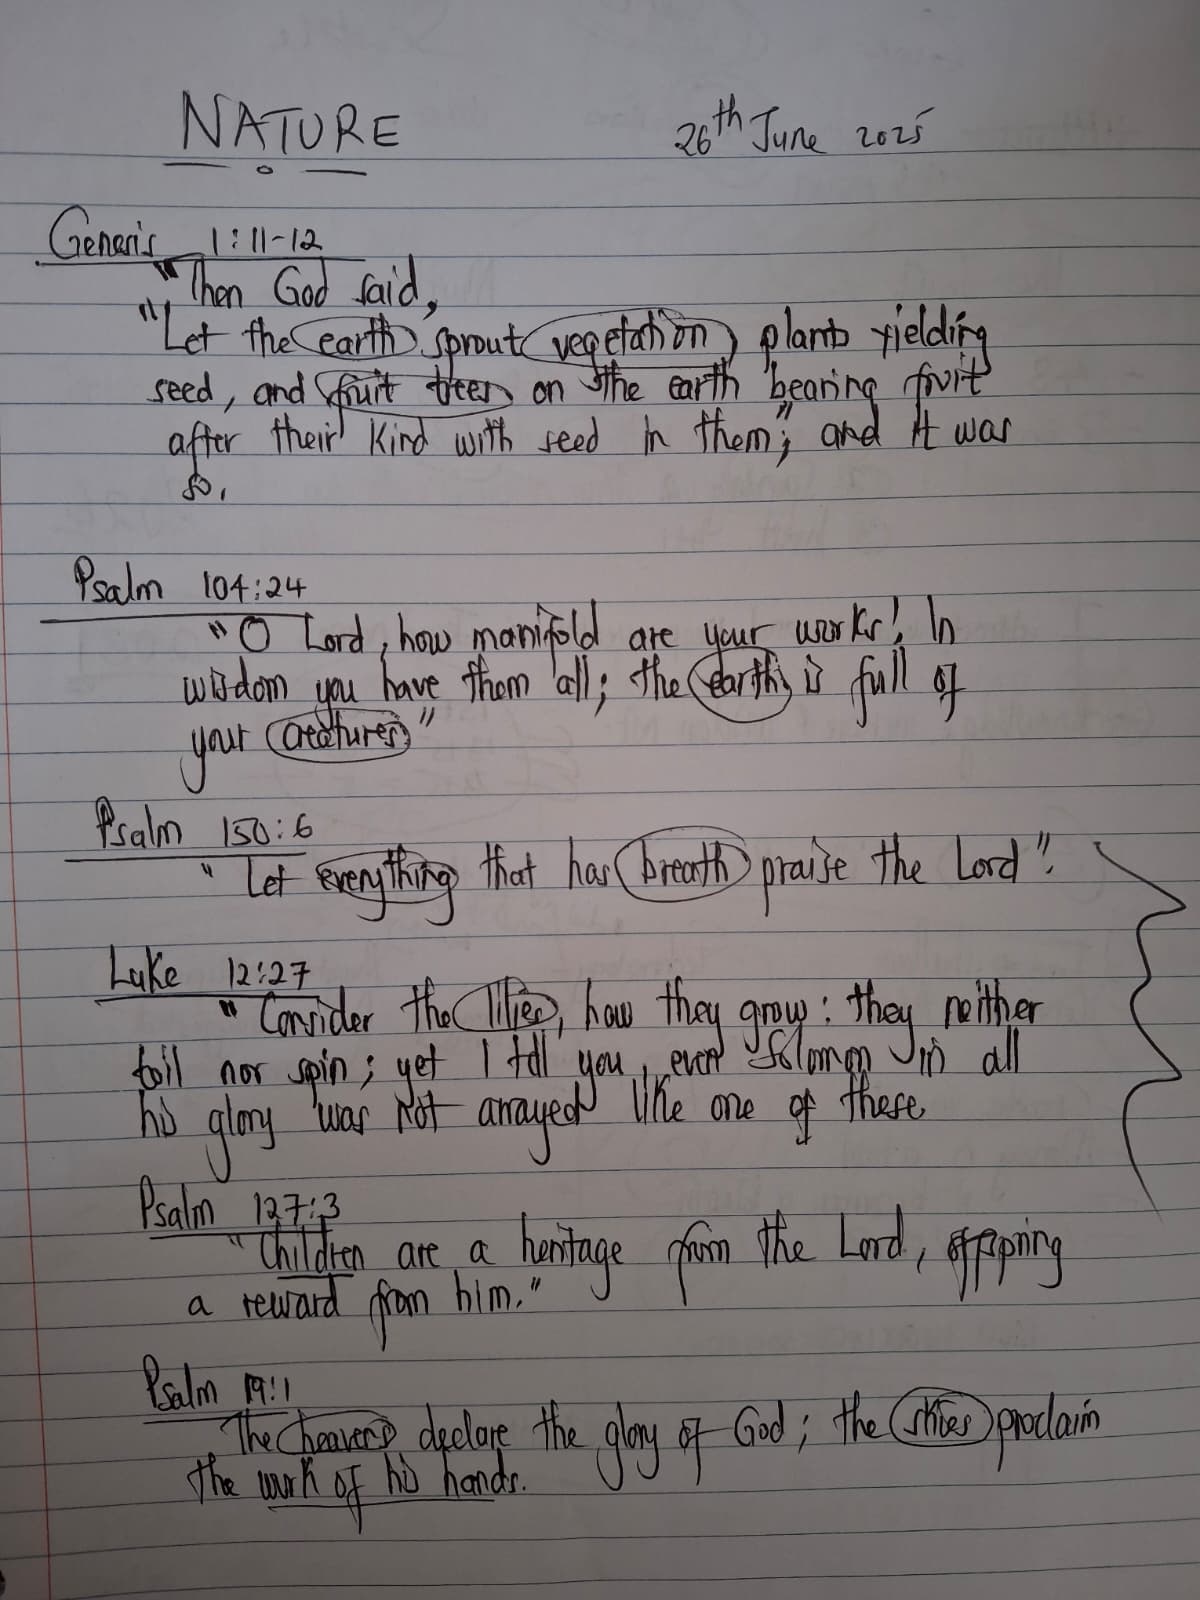 NATURE 26th June 2025
Genesis 1:11-12
"Then God said,
"Let the earth sprout vegetation, plants yielding
seed, and fruit trees on the earth bearing fruit
after their kind with seed in them"; and it was
so.
Psalm 104:24
"O Lord, how manifold are your works! In
wisdom you have them all; the earth is full of
your creatures"
Psalm 150:6
"Let everything that has breath praise the Lord".
Luke 12:27
"Consider the lilies, how they grow: they neither
toil nor spin; yet I tell you, even Solomon in all
his glory was not arrayed like one of these
Psalm 127:3
"Children are a heritage from the Lord, offspring
a reward from him."
Psalm 19:1
The heavens declare the glory of God; the skies proclaim
the work of his hands.